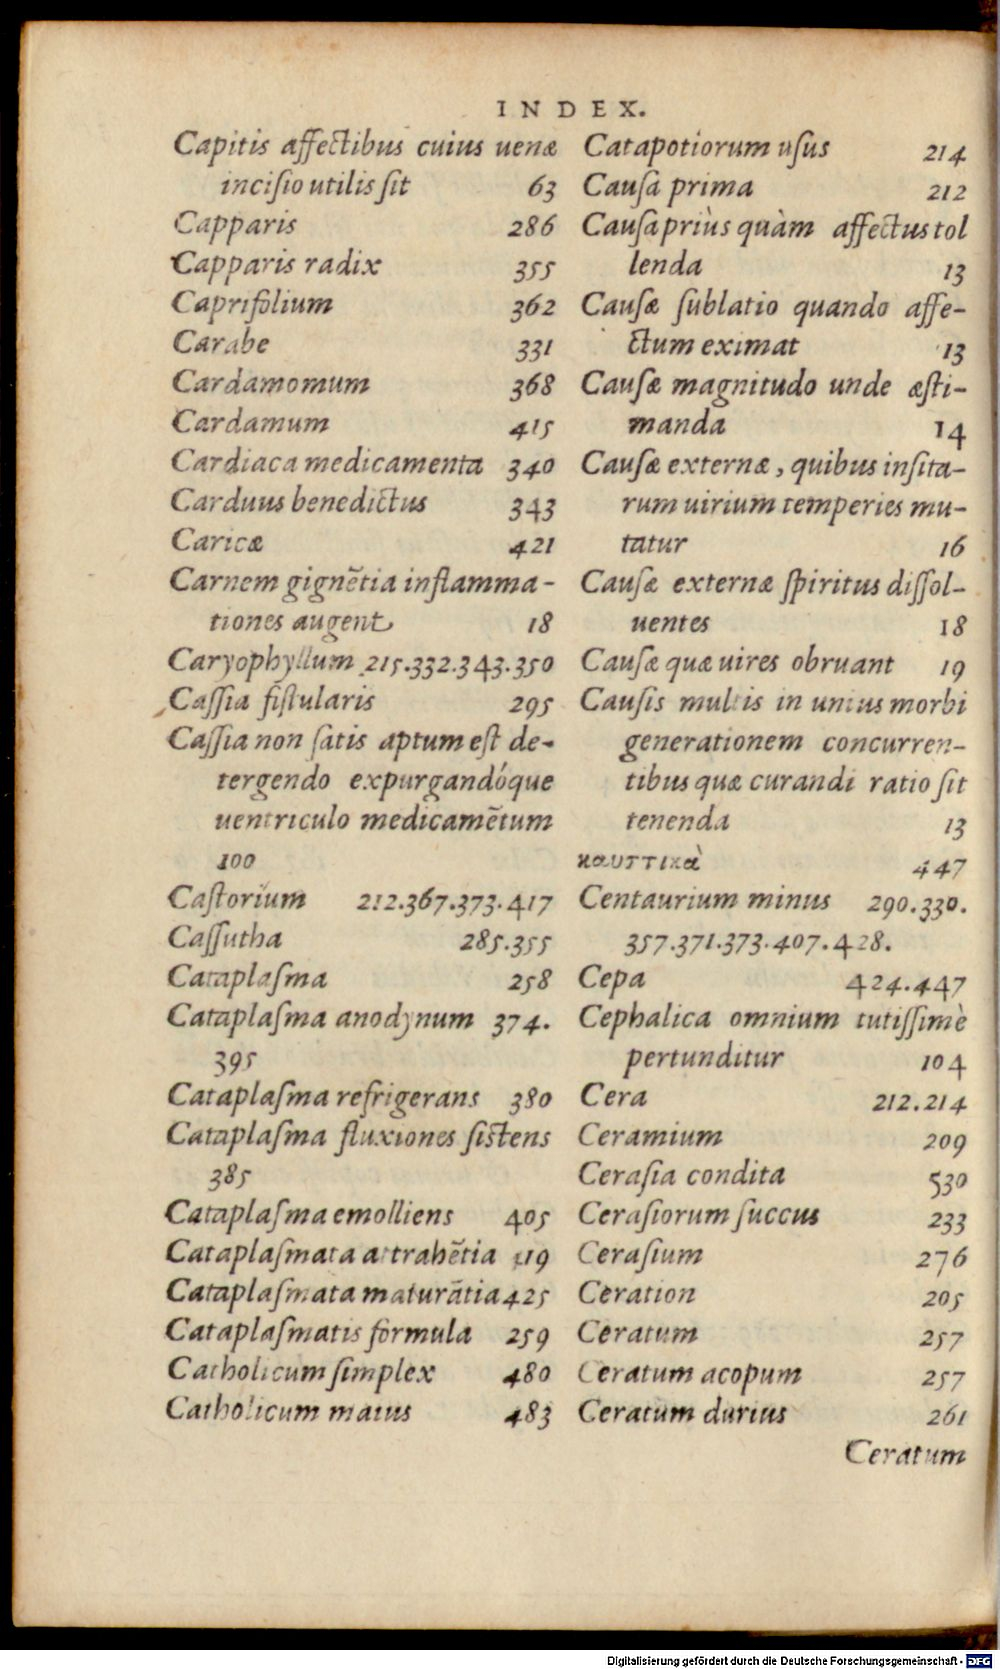 INDEX.
Capitis affectibus cuius uenæ
incisio utilis sit 63
Capparis 286
Capparis radix 355
Caprifolium 362
Carabe 331
Cardamomum 368
Cardamum 415
Cardiaca medicamenta 340
Carduus benedictus 343
Caricæ 421
Carnem gignẽtia inflamma-
tiones augent 18
Caryophyllum 215.332.343.350
Cassia fistularis 295
Cassia non satis aptum est de-
tergendo expurgandóque
uentriculo medicamẽtum
100
Castorium 212.367.373.417
Cassutha 285.355
Cataplasma 258
Cataplasma anodynum 374.
395
Cataplasma refrigerans 380
Cataplasma fluxiones sistens
385
Cataplasma emolliens 405
Cataplasmata attrahẽtia 119
Cataplasmata maturãtia 425
Cataplasmatis formula 259
Catholicum simplex 480
Catholicum maius 483
Catapotiorum usus 214
Causa prima 212
Causa priùs quàm affectus tol
lenda 13
Causæ sublatio quando affe-
ctum eximat 13
Causæ magnitudo unde æsti-
manda 14
Causæ externæ, quibus insita-
rum uirium temperies mu-
tatur 16
Causæ externæ spiritus dissol-
uentes 18
Causæ quæ uires obruant 19
Causis multis in unius morbi
generationem concurren-
tibus quæ curandi ratio sit
tenenda 13
καυστικὰ 447
Centaurium minus 290.330.
357.371.373.407.428.
Cepa 424.447
Cephalica omnium tutissimè
pertunditur 104
Cera 212.214
Ceramium 209
Cerasia condita 530
Cerasiorum succus 233
Cerasium 276
Ceration 205
Ceratum 257
Ceratum acopum 257
Ceratum durius 261
Ceratum
Digitalisierung gefördert durch die Deutsche Forschungsgemeinschaft - DFG